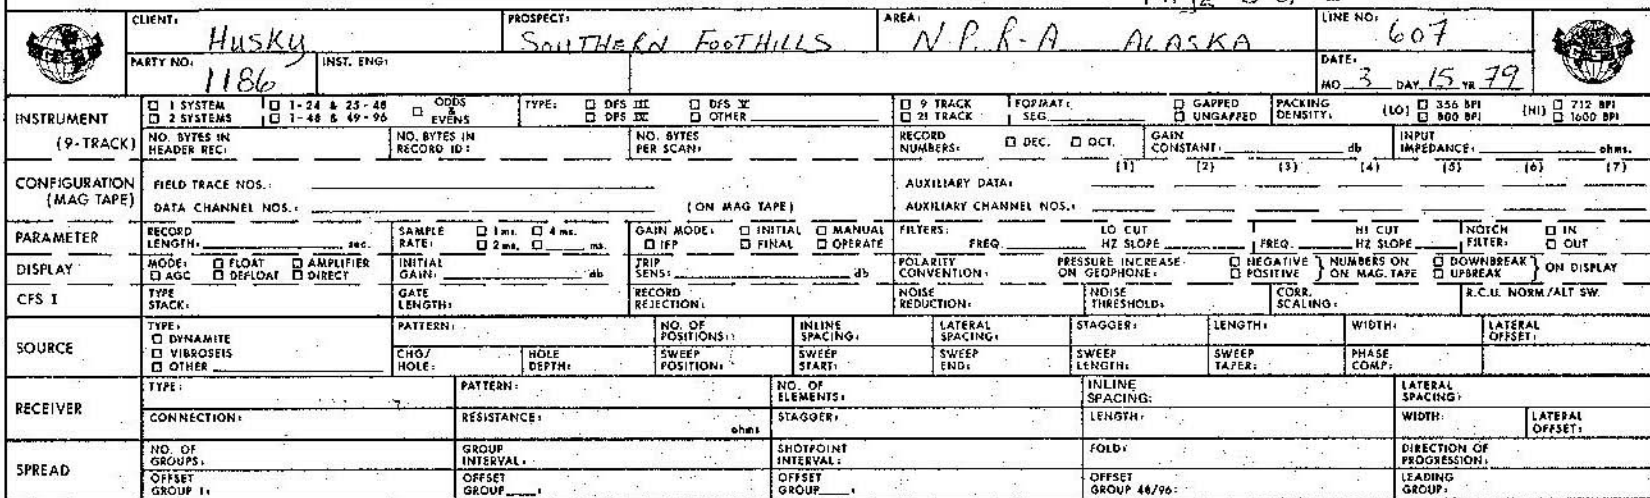 CLIENT: Husky PROSPECT: SOUTHERN FOOTHILLS AREA: N.P.R-A ALASKA LINE NO: 607
PARTY NO: 1186 INST. ENG: DATE: MO 3 DAY 15 YR 79
INSTRUMENT (9-TRACK)
□ 1 SYSTEM □ 1-24 & 25-48 □ ODDS & EVENS TYPE: □ DFS III □ DFS V □ 9 TRACK FORMAT: □ GAPPED PACKING DENSITY: (LO) □ 356 BPI (HI) □ 712 BPI
□ 2 SYSTEMS □ 1-48 & 49-96 □ DFS IV □ OTHER □ 21 TRACK SEG. □ UNGAPPED □ 800 BPI □ 1600 BPI
NO. BYTES IN HEADER REC: NO. BYTES IN RECORD ID: NO. BYTES PER SCAN: RECORD NUMBERS: □ DEC. □ OCT. GAIN CONSTANT: db INPUT IMPEDANCE: ohms.
CONFIGURATION (MAG TAPE)
(1) (2) (3) (4) (5) (6) (7)
FIELD TRACE NOS.: AUXILIARY DATA:
DATA CHANNEL NOS.: (ON MAG TAPE) AUXILIARY CHANNEL NOS.:
PARAMETER RECORD LENGTH: sec. SAMPLE RATE: □ 1 ms. □ 4 ms. □ 2 ms. □ ms. GAIN MODE: □ INITIAL □ MANUAL □ IFP □ FINAL □ OPERATE FILTERS: FREQ. LO CUT HZ SLOPE FREQ. HI CUT HZ SLOPE NOTCH FILTER: □ IN □ OUT
DISPLAY MODE: □ FLOAT □ AMPLIFIER □ AGC □ DEFLOAT □ DIRECT INITIAL GAIN: db TRIP SENS: db POLARITY CONVENTION: PRESSURE INCREASE ON GEOPHONE: □ NEGATIVE □ POSITIVE } NUMBERS ON MAG. TAPE □ DOWNBREAK □ UPBREAK } ON DISPLAY
CFS I TYPE STACK: GATE LENGTH: RECORD REJECTION: NOISE REDUCTION: NOISE THRESHOLD: CORR. SCALING: R.C.U. NORM/ALT SW.
SOURCE
TYPE: □ DYNAMITE □ VIBROSEIS □ OTHER PATTERN: NO. OF POSITIONS: INLINE SPACING: LATERAL SPACING: STAGGER: LENGTH: WIDTH: LATERAL OFFSET:
CHG/HOLE: HOLE DEPTH: SWEEP POSITION: SWEEP START: SWEEP END: SWEEP LENGTH: SWEEP TAPER: PHASE COMP:
RECEIVER
TYPE: PATTERN: NO. OF ELEMENTS: INLINE SPACING: LATERAL SPACING:
CONNECTION: RESISTANCE: ohms STAGGER: LENGTH: WIDTH: LATERAL OFFSET:
SPREAD
NO. OF GROUPS: GROUP INTERVAL: SHOTPOINT INTERVAL: FOLD: DIRECTION OF PROGRESSION:
OFFSET GROUP 1: OFFSET GROUP : OFFSET GROUP : OFFSET GROUP 48/96: LEADING GROUP: